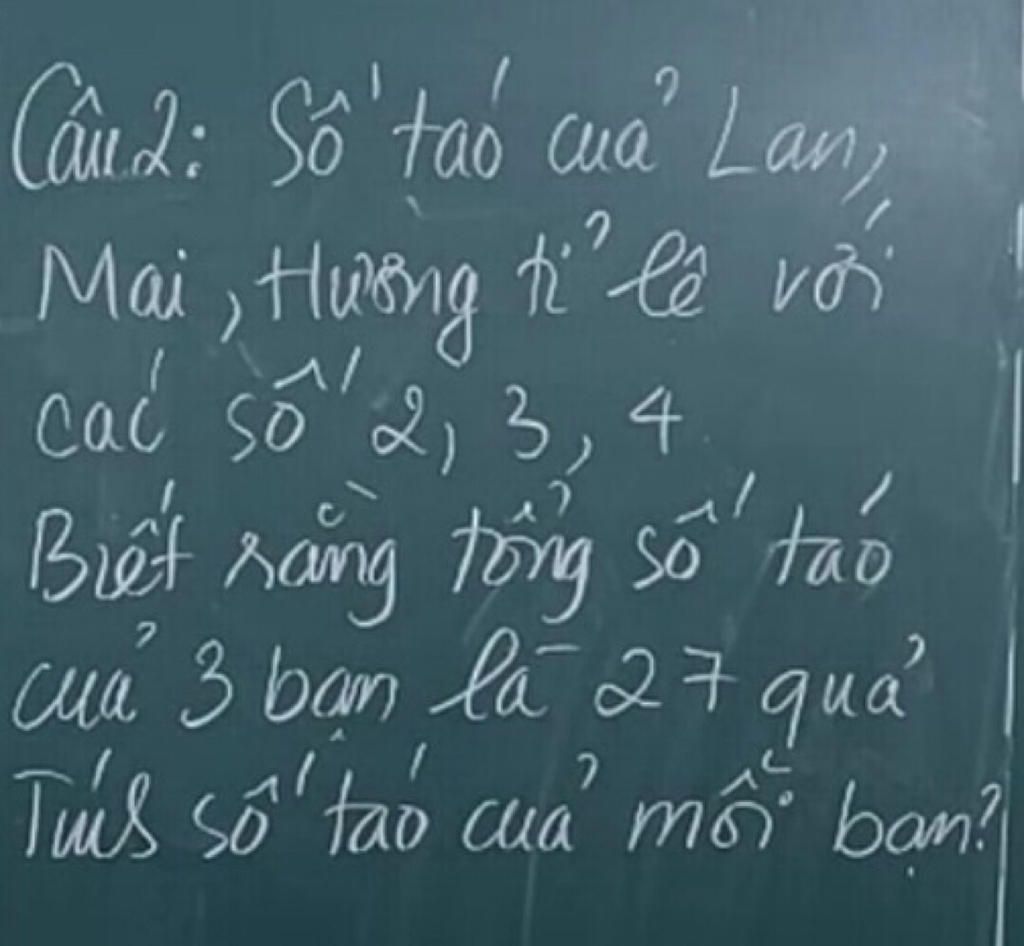 Câu 2: Số táo của Lan,
Mai, Hường tỉ lê với
các số 2, 3, 4
Biết rằng tổng số táo
của 3 bạn là 27 quả
Tính số táo của mỗi bạn?